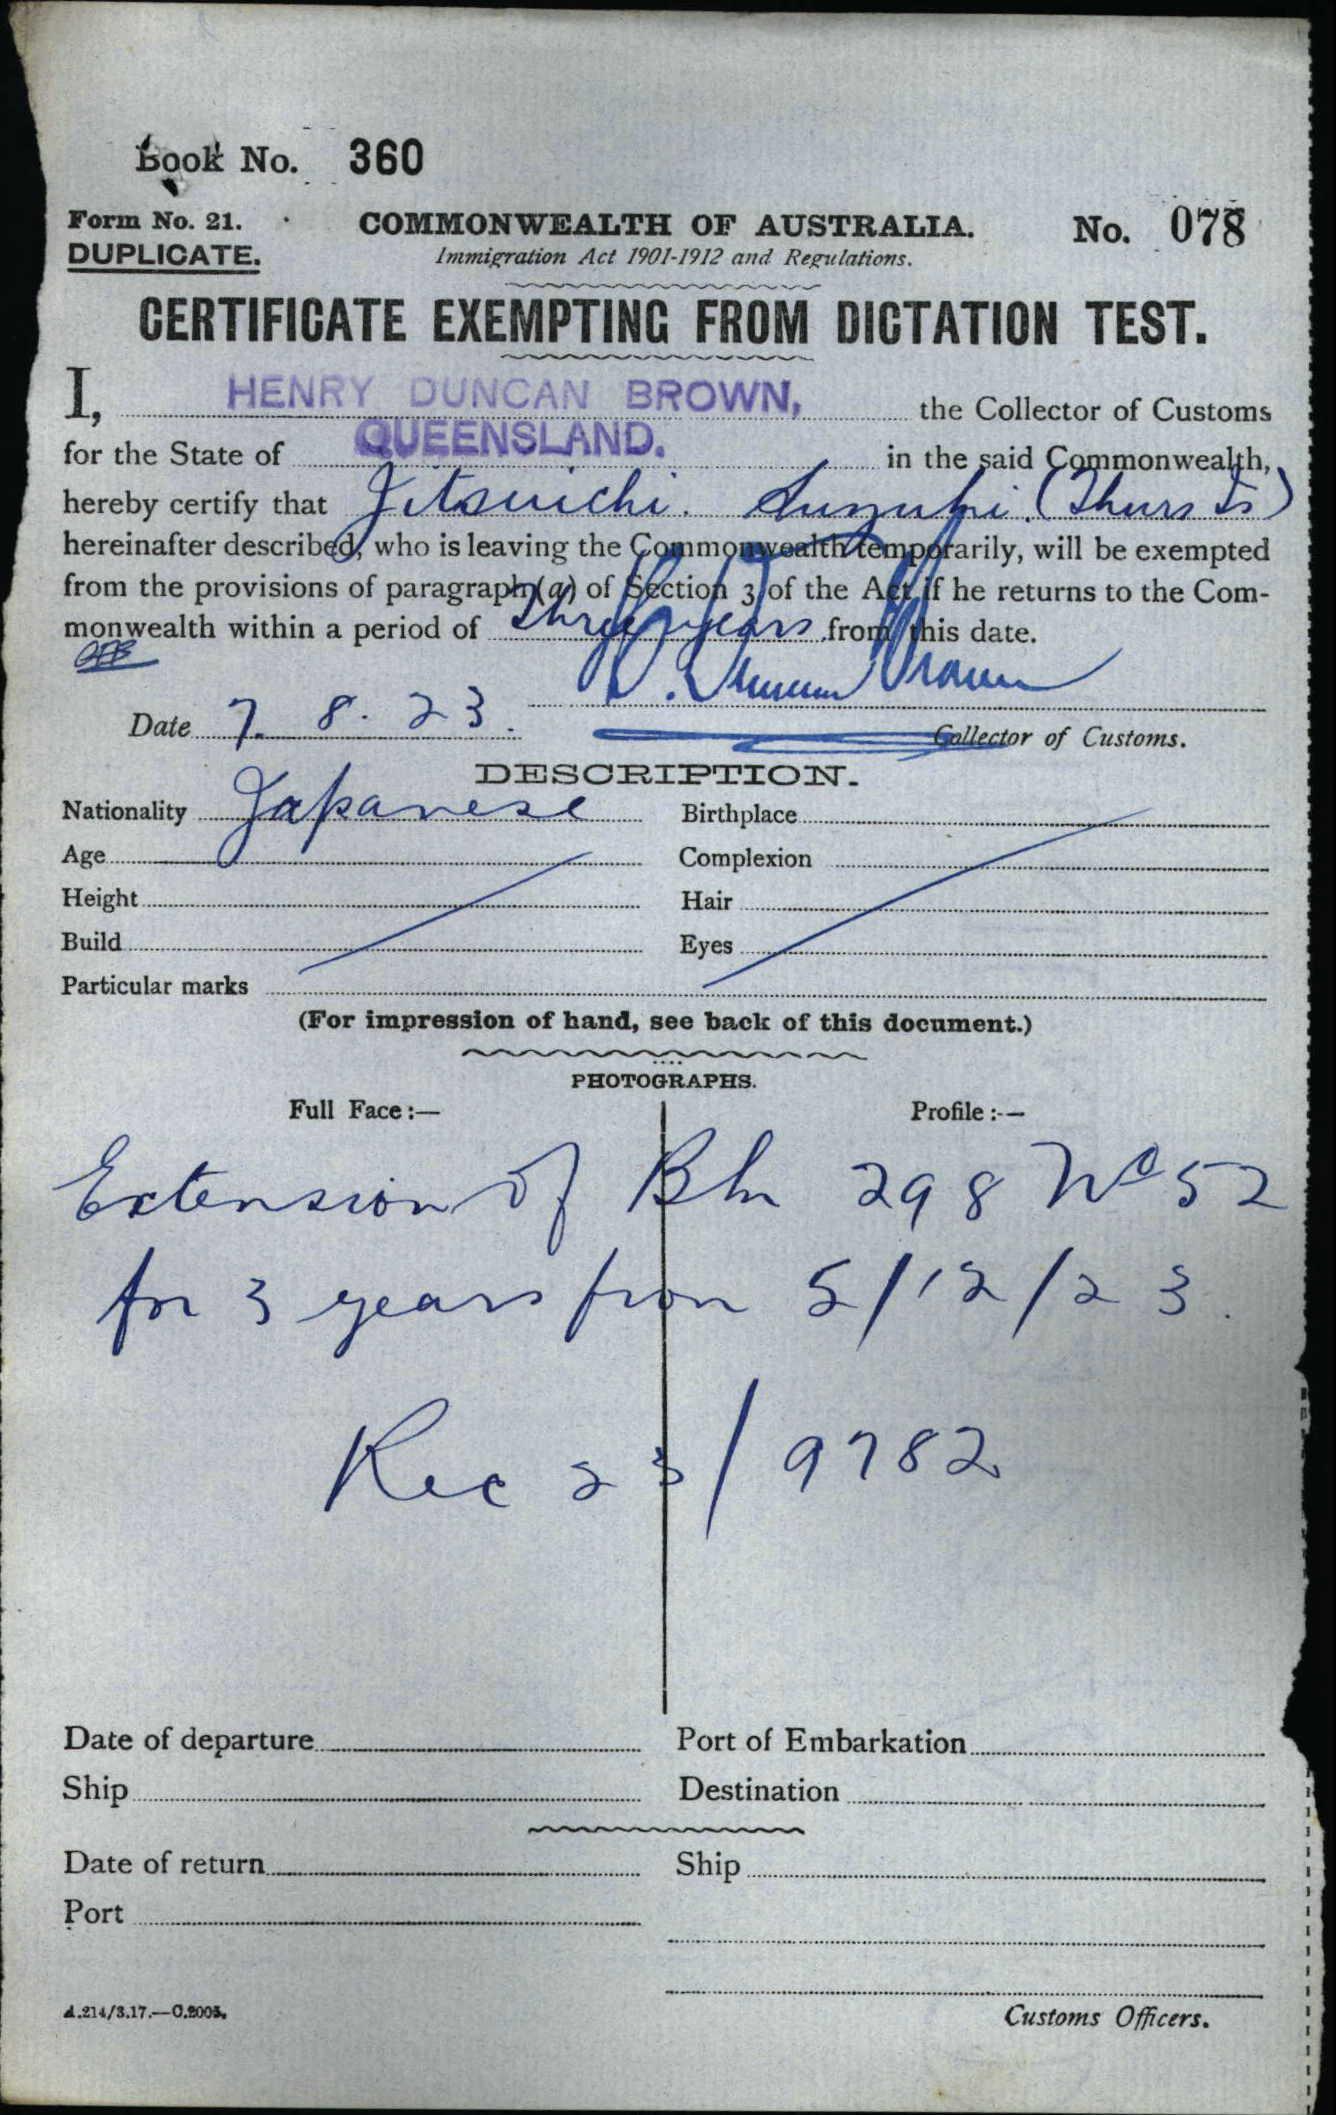 Book No. 360
Form No. 21.
COMMONWEALTH OF AUSTRALIA.
No. 078
DUPLICATE.
Immigration Act 1901-1912 and Regulations.
CERTIFICATE EXEMPTING FROM DICTATION TEST.
I, HENRY DUNCAN BROWN, the Collector of Customs
for the State of QUEENSLAND. in the said Commonwealth,
hereby certify that Jitsuichi Suzuki (Thurs Is)
hereinafter described, who is leaving the Commonwealth temporarily, will be exempted
from the provisions of paragraph (a) of Section 3 of the Act if he returns to the Com-
monwealth within a period of Three years from this date.
H. Duncan Brown
Date 7. 8. 23.
Collector of Customs.
DESCRIPTION.
Nationality Japanese
Birthplace
Age
Complexion
Height
Hair
Build
Eyes
Particular marks
(For impression of hand, see back of this document.)
PHOTOGRAPHS.
Full Face:—
Profile:—
Extension of Bk 298 No 52
for 3 years from 5/12/23.
Rec 23/9782
Date of departure
Port of Embarkation
Ship
Destination
Date of return
Ship
Port
A.214/3.17.—C.2005.
Customs Officers.